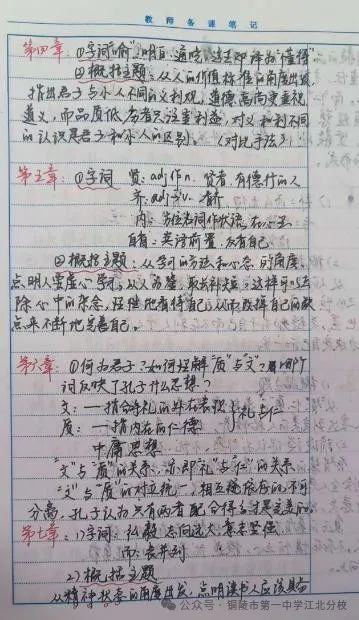 教师备课笔记
第四章：①字词"喻"，明白，通晓，这里可译为"懂得"
②概括主题：从人的价值标准的角度出发，
指出君子与小人不同的义利观，道德高尚者重视
道义，而品质低劣者只注重利益，对义和利不同
的认识是君子和小人的区别。（对比手法）
第五章：①字词 贤：adj作n. 贤者，有德行的人
齐：adj作v. 看齐
内：方位名词作状语，在心里
自省：宾语前置，反省自己
②概括主题：从学习的方法和心态的角度，
点明人要虚心学习，以人为鉴，取长补短，这样可以
除心中的杂念，理性地看待自己，从而改掉自己的缺
点来不断地完善自己。
第六章：①何为君子？如何理解"质"与"文"？
词反映了孔子什么思想？
文：一指合乎礼的外在表现
质：一指内在的仁德
礼与仁
中庸思想
"文"与"质"的关系，亦即"礼"与"仁"的关系
"文"与"质"的对立统一，相互依存，不可
分离，孔子认为只有两者配合得当才是完美的。
第七章：1）字词：弘毅：志向远大，意志坚强
而：表并列
2）概括主题
从精神状态的角度出发，点明读书人应该具备
公众号·铜陵市第一中学江北分校